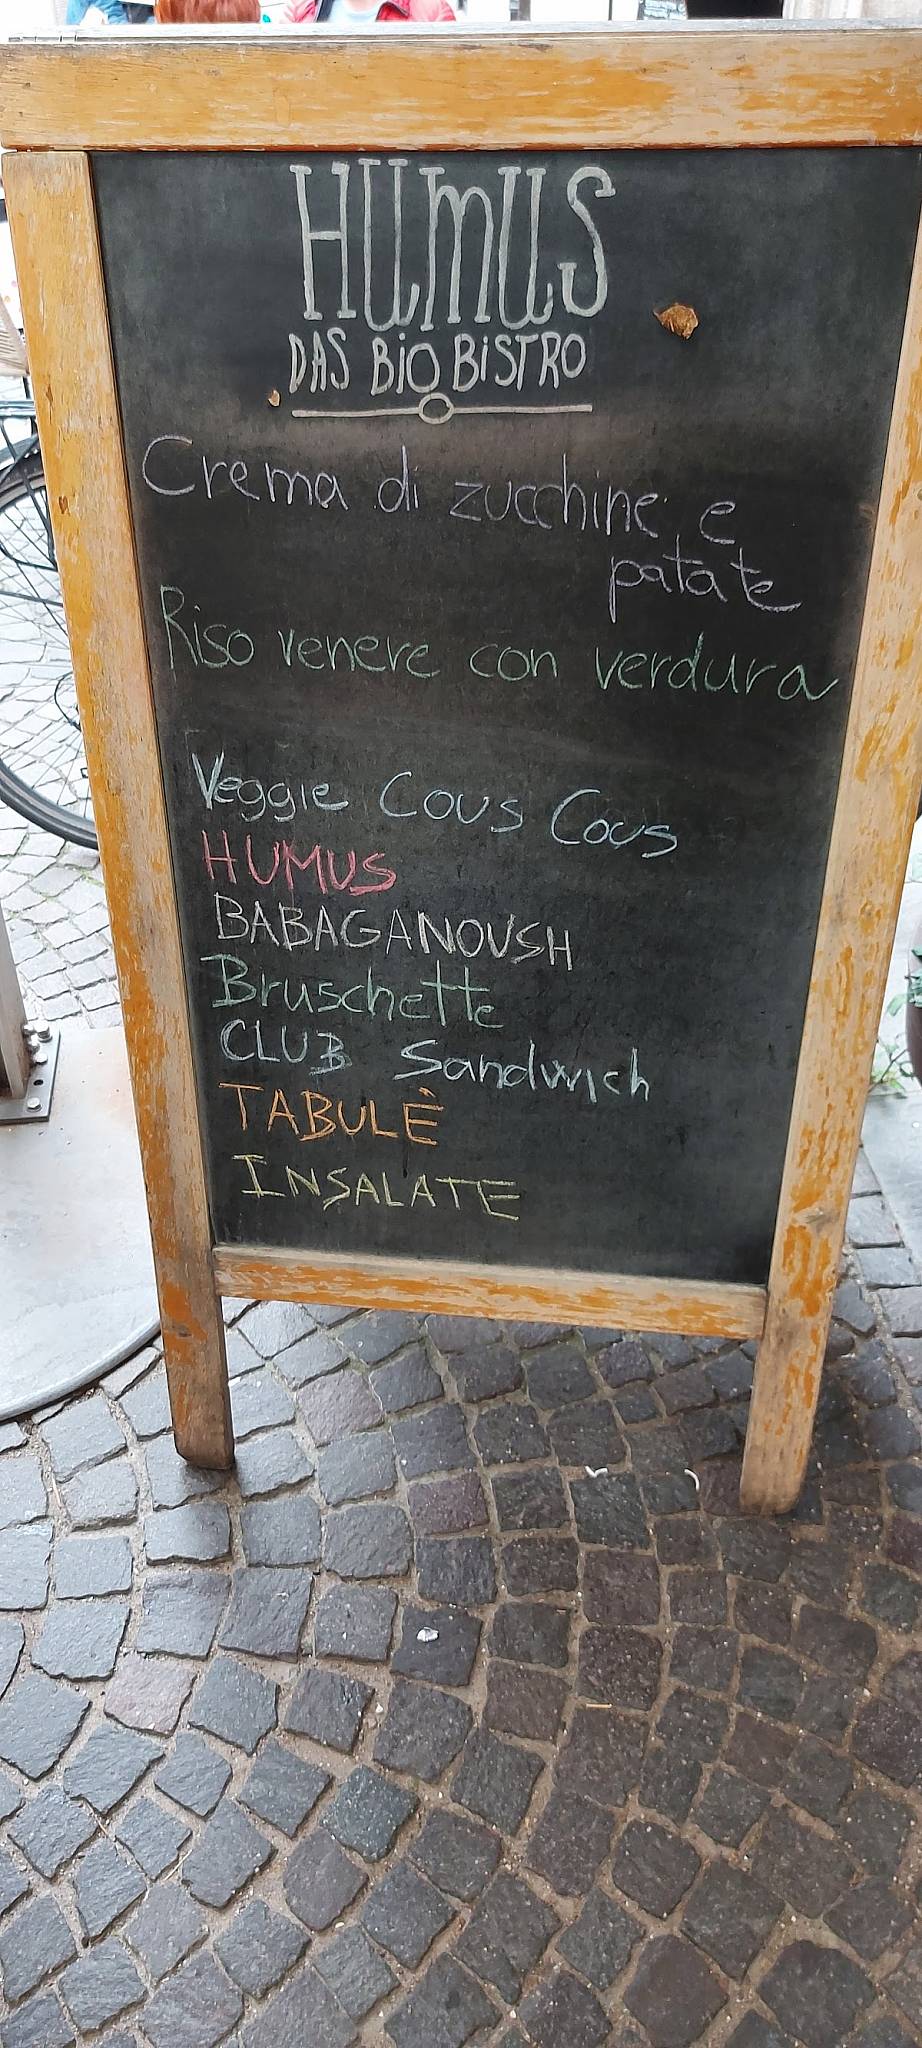 HUMUS
DAS BIO BISTRO
Crema di zucchine e
patate
Riso venere con verdura
Veggie Cous Cous
HUMUS
BABAGANOUSH
Bruschette
CLUB Sandwich
TABULÈ
INSALATE